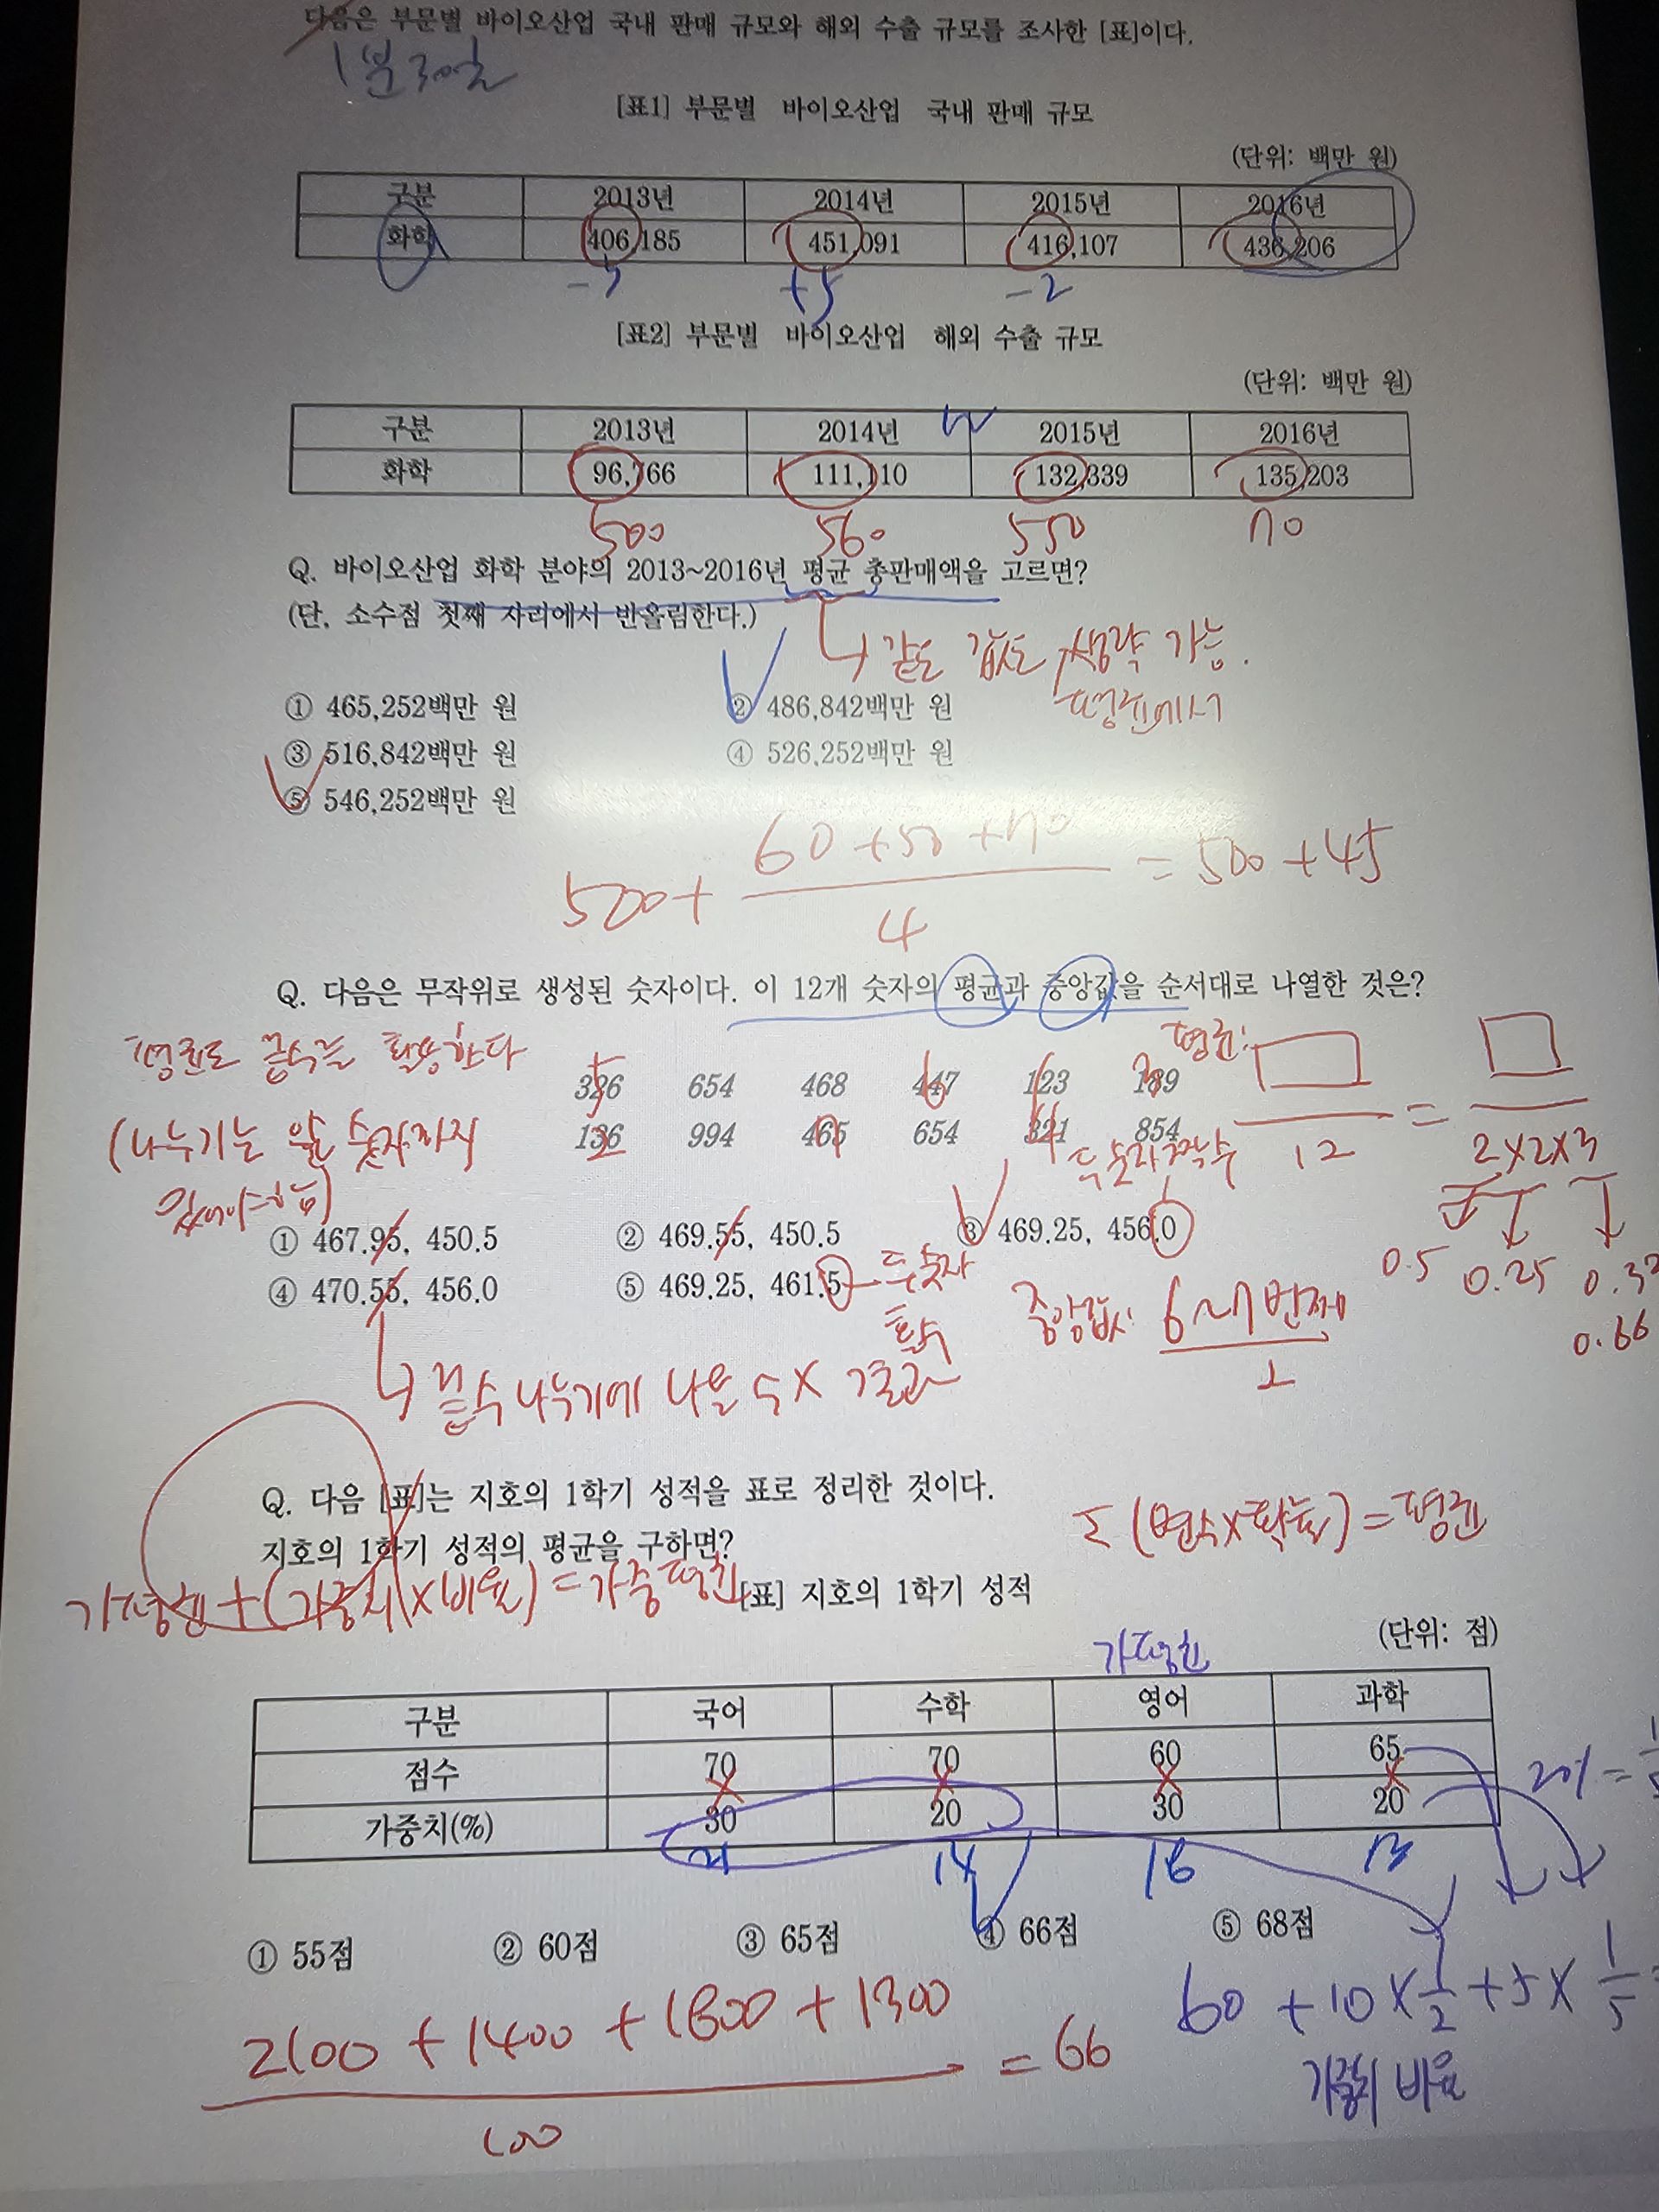 다음은 부문별 바이오산업 국내 판매 규모와 해외 수출 규모를 조사한 [표]이다.
1분 30초
[표1] 부문별 바이오산업 국내 판매 규모
(단위: 백만 원)
구분 2013년 2014년 2015년 2016년
화학 406,185 451,091 416,107 436,206
+5 -2
[표2] 부문별 바이오산업 해외 수출 규모
(단위: 백만 원)
구분 2013년 2014년 2015년 2016년
화학 96,766 111,110 132,339 135,203
500 560 550 70
Q. 바이오산업 화학 분야의 2013~2016년 평균 총판매액을 고르면?
(단, 소수점 첫째 자리에서 반올림한다.)
같은 값은 생략 가능.
평균에서
① 465,252백만 원 ② 486,842백만 원
③ 516,842백만 원 ④ 526,252백만 원
⑤ 546,252백만 원
500 + 60+50+70 / 4 = 500+45
Q. 다음은 무작위로 생성된 숫자이다. 이 12개 숫자의 평균과 중앙값을 순서대로 나열한 것은?
평균은 끝수를 활용한다
평균:
326 654 468 447 123 189
(나누기는 앞 숫자까지
136 994 465 654 321 854
12 = 2×2×3
두 숫자 짝수
① 467.95, 450.5 ② 469.55, 450.5 ③ 469.25, 456.0
④ 470.55, 456.0 ⑤ 469.25, 461.5
두 숫자
홀수
0.5 0.25
0.66
중앙값: 6~7번째 / 2
끝수 나누기에 나올 수 × 결과
Q. 다음 [표]는 지호의 1학기 성적을 표로 정리한 것이다.
지호의 1학기 성적의 평균을 구하면?
Σ(변수×확률)=평균
가평균+(가중치×비율)=가중평균
[표] 지호의 1학기 성적
(단위: 점)
가평균
구분 국어 수학 영어 과학
점수 70 70 60 65
가중치(%) 30 20 30 20
21 14 18 13
20% =
① 55점 ② 60점 ③ 65점 ④ 66점 ⑤ 68점
2100 + 1400 + 1800 + 1300 / 100 = 66
60 + 10 × 1/2 + 5 × 1/5
가중치 비율